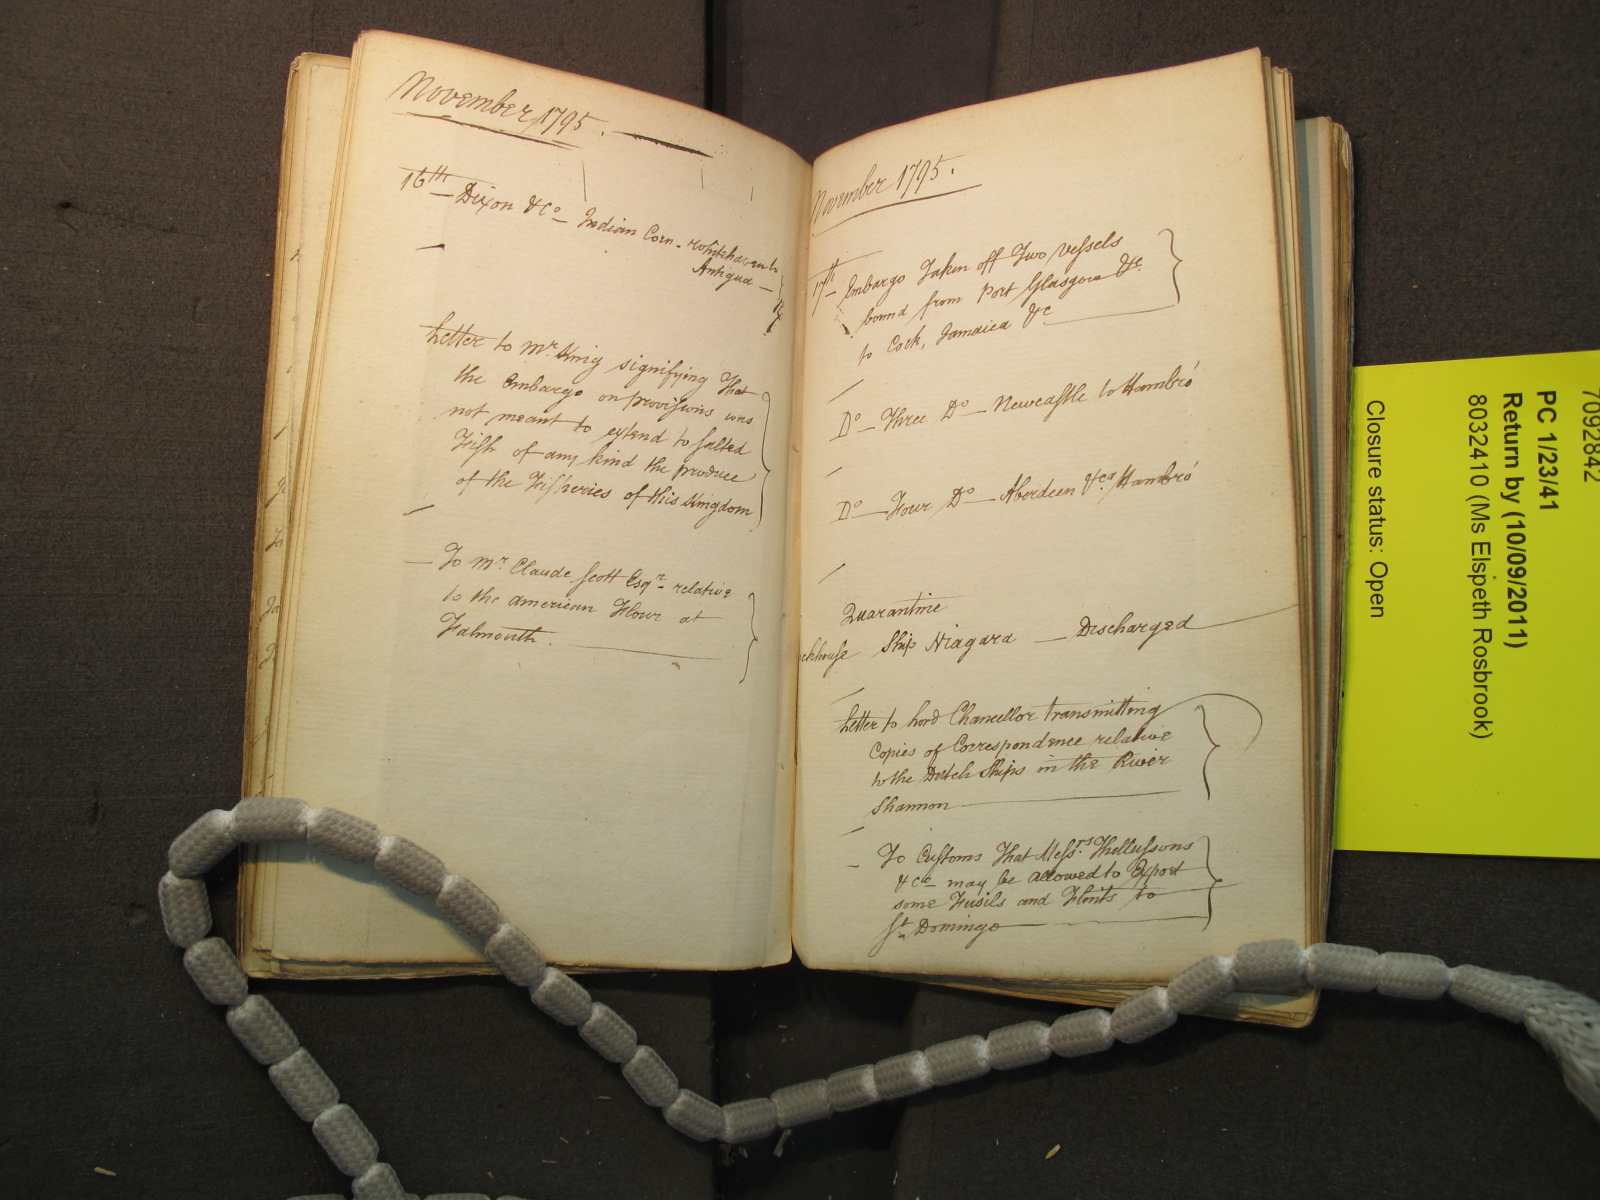 November 1795.
16th Dixon & Co Indian Corn - Whitehaven to
Antigua
Letter to Mr King signifying That
the Embargo on provisions was
not meant to extend to salted
Fish of any kind the produce
of the Fisheries of this Kingdom
To Mr Claude Scott Esqr relative
to the American Flour at
Falmouth.
November 1795.
17th Embargo Taken off Two Vessels
bound from Port Glasgow &c
to Cork, Jamaica &c
Do Three Do Newcastle to Hambro'
Do Four Do Aberdeen &ca Hambro'
Quarantine
ckhouse Ship Niagara Discharged
Letter to Lord Chancellor transmitting
Copies of Correspondence relative
to the Dutch Ships in the River
Shannon
To Customs That Messrs Thellussons
& Co may be allowed to Export
some Fusils and Flints to
St Domingo
7092842
PC 1/23/41
Return by (10/09/2011)
8032410 (Ms Elspeth Rosbrook)
Closure status: Open